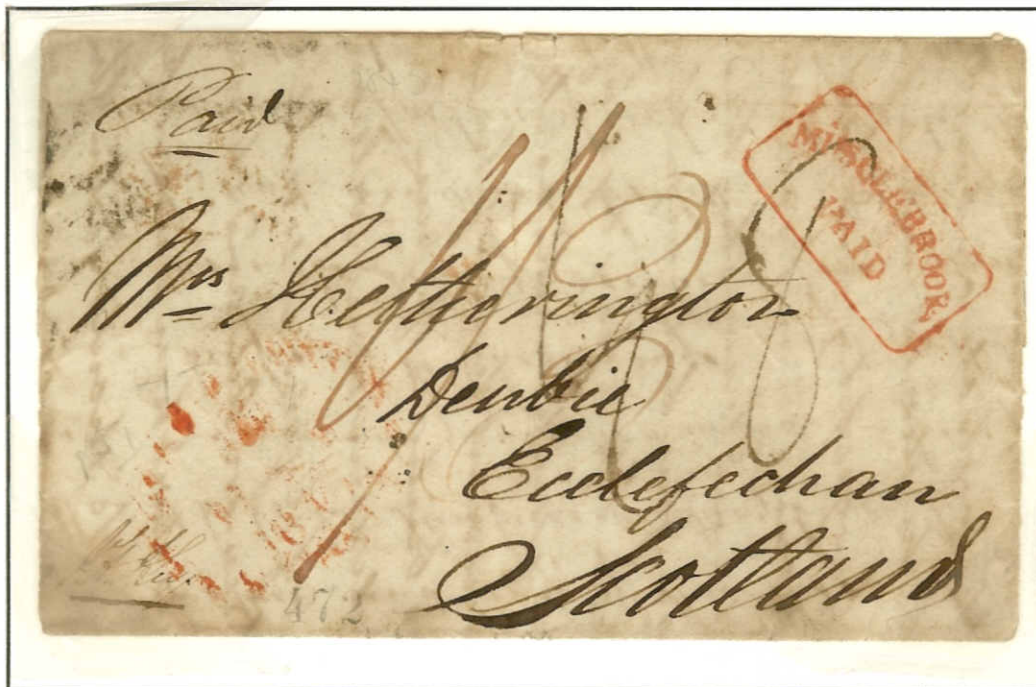 Paid
PAID
Mrs Hetherington
Denbie
Ecclefechan
Scotland
472